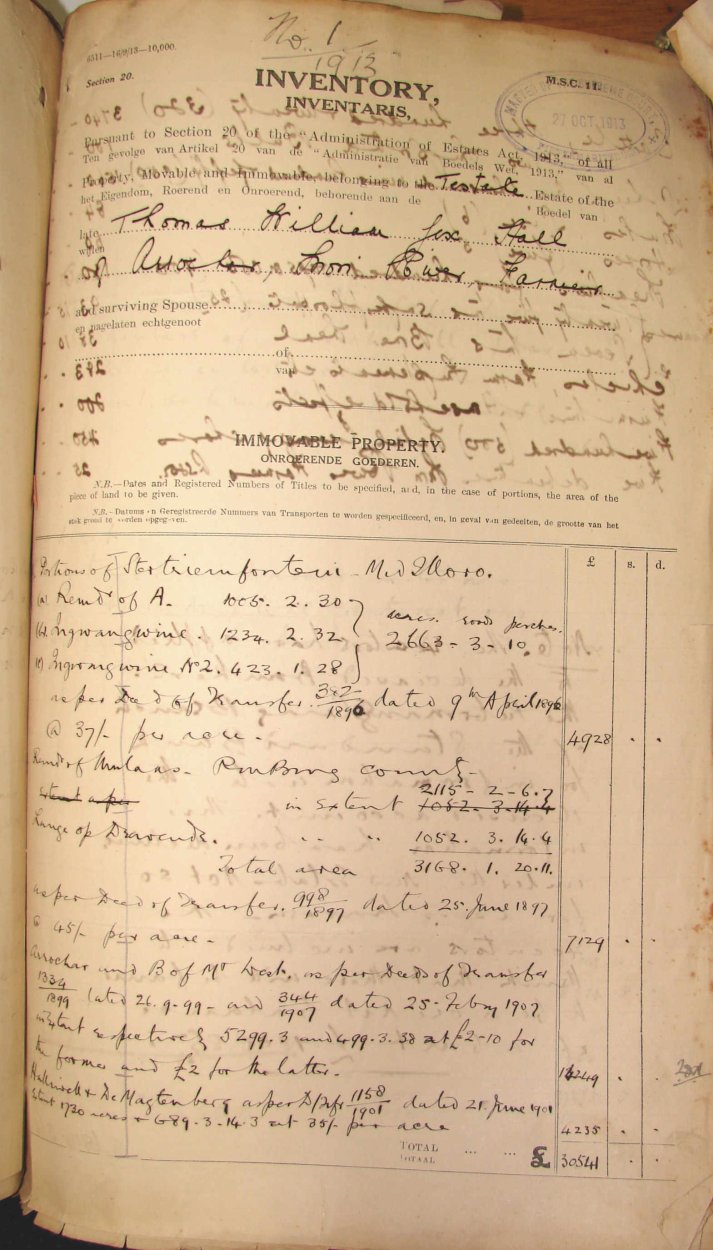 No. 1
1913
6511—16/9/13—10,000.
Section 20.
M.S.C. 11.
27 OCT 1913
INVENTORY,
INVENTARIS,
Pursuant to Section 20 of the "Administration of Estates Act, 1913," of all
Ten gevolge van Artikel 20 van de "Administratie van Boedels Wet, 1913," van al
Property, Movable and Immovable, belonging to the Testate Estate of the
het Eigendom, Roerend en Onroerend, behorende aan de Boedel van
late Thomas William Hall
wijlen
of
and surviving Spouse
en nagelaten echtgenoot
of
van
IMMOVABLE PROPERTY.
ONROERENDE GOEDEREN.
N.B.—Dates and Registered Numbers of Titles to be specified, and, in the case of portions, the area of the
piece of land to be given.
N.B.—Datums en Geregistreerde Nummers van Transporten te worden gespecificeerd, en, in geval van gedeelten, de grootte van het
stuk grond te worden opgegeven.
£ s. d.
Portions of
(a) Remdr of A. 1005. 2. 30
acres. roods perches.
(b) Ingwangwine. 1234. 2. 32 2663 - 3 - 10
(c) Ingwangwine No 2. 423. 1. 28
as per Deed of Transfer 382/1896 dated 9th April 1896
@ 37/- per acre. 4928 . .
Remdr of Umlaas - County
2115 - 2 - 6.7
extent as per in Extent 1052. 3.14.4
1052. 3. 14. 4
Total area 3168. 1. 20.11.
as per Deed of Transfer. 998/1897 dated 25. June 1897
@ 45/- per acre. 7129 . .
Arrochar and B of Mt West, as per Deeds of Transfer
1334/1899 dated 26. 9. 99 - and 344/1907 dated 25 - Febry 1907
in Extent respectively 5299.3 and 499.3.38 at £2-10 for
the former and £2 for the latter. 14249 . .
De Magtenberg as per D/Tfr 1158/1901 dated 21. June 1901
Extent 1730 acres + 689.3.14.3 at 35/- per acre 4235 . .
TOTAL ... ... £ 30541 . .
TOTAAL